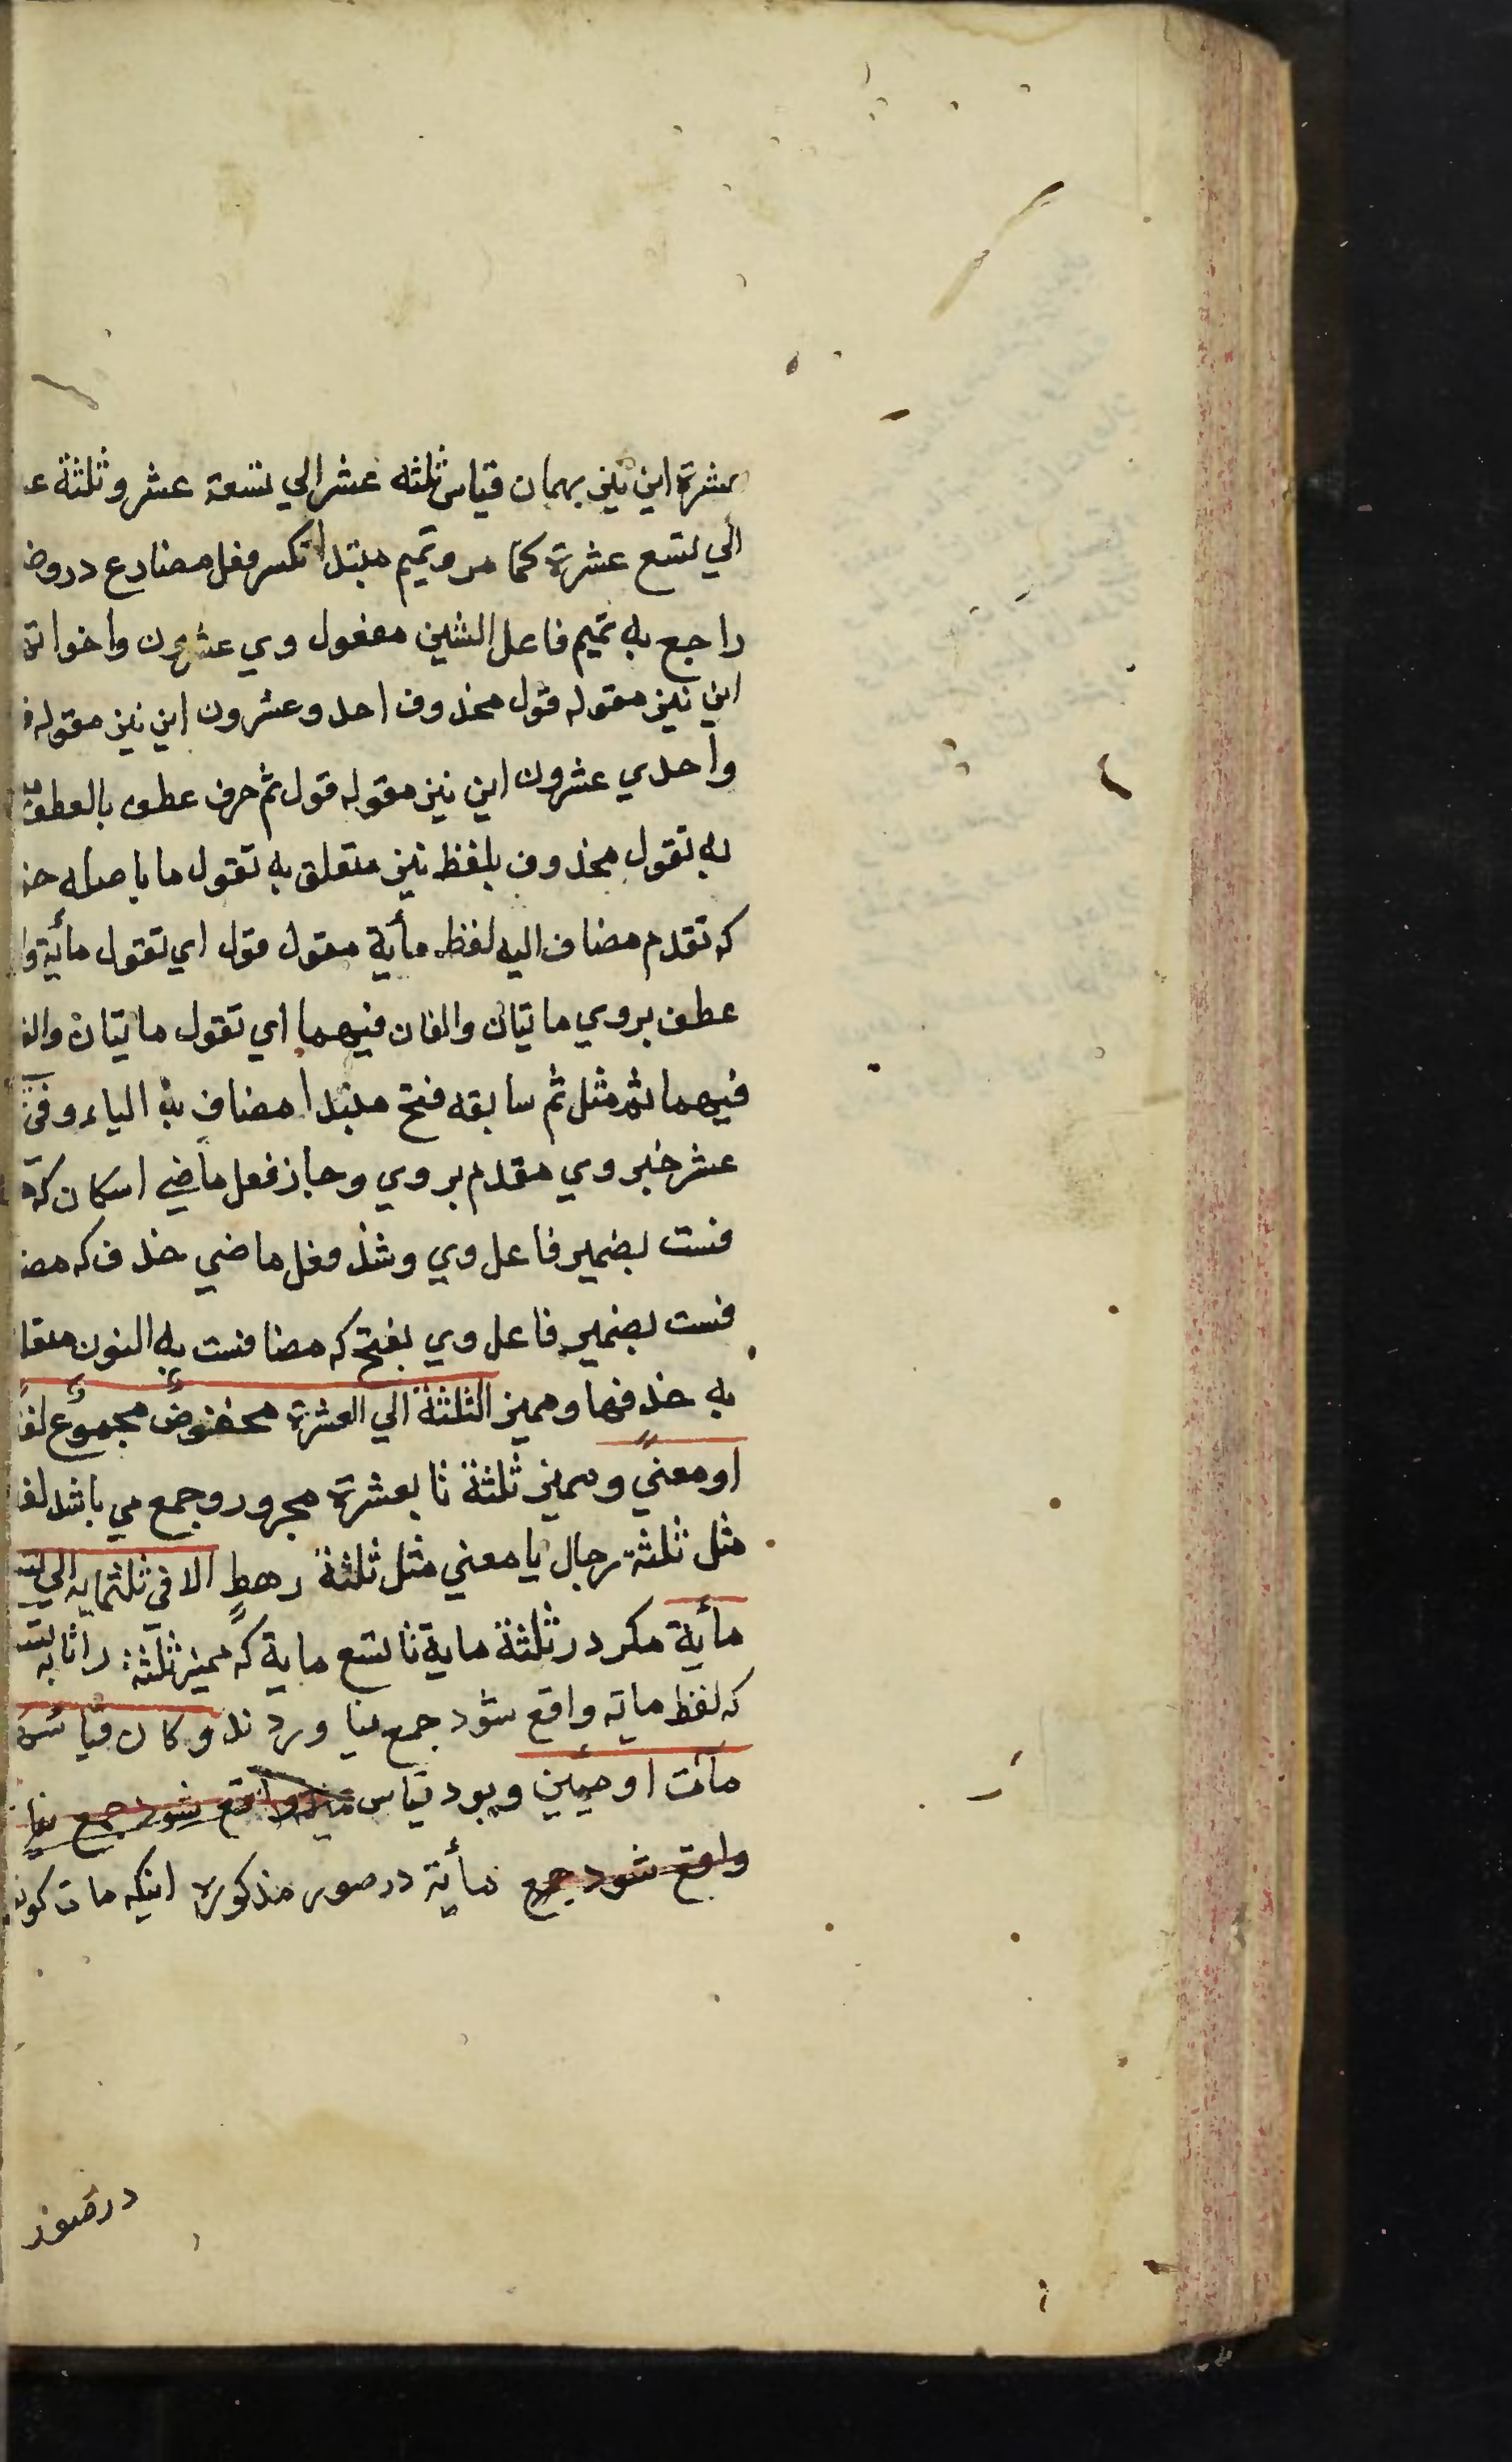 عشرة این نیز بهمان قیاس ثلثه عشر الی تسعة عشر وثلثة عـ
الی تسع عشرة کما مر وتمیم مبتدا تکسر فعل مضارع دروضـ
راجع به تمیم فاعل الشین مفعول وی عشرون واخواتة
این نیز مقوله قول محذوف احد وعشرون این نیز مقوله قـ
واحدی عشرون این نیز مقوله قول ثم حرف عطف بالعطف
به تقول محذوف بلفظ نیز متعلق به تقول ما باصله حذ
که تقدم مضاف الیه لفظ مأیة مقول قول ای تقول مأیة وا
عطف بروی ماتیان والفان فیهما ای تقول ماتیان والفـ
فیهما ثم مثل ثم سابقه فتح مبتدا مضاف به الیاء وفی
عشر خبر وی مقدم بروی وجاز فعل ماضی اسکان که
فست بضمیر فاعل وی وشذ وفعل ماضی حذف که مضـ
فست بضمیر فاعل وی بفتح که مضافست به النون متعلـ
به حذفها وممیز الثلثة الی العشرة مخفوض مجموع لفـ
او معنی وممیز ثلثة تا بعشرة مجرور وجمع می باشد لفـ
مثل ثلثة رجال یا معنی مثل ثلثة رهط الا فی ثلثمایه الی تسـ
مأیة مکر در ثلثة مایة تا تسع مایة که ممیز ثلثة را تا به تسـ
که لفظ مایه واقع شود جمع نیاوردند وکان قیاسه
مآت او مئین وبود قیاس ممیز واقع شود جمع نیا
واقع شود جمع مأیة در صور مذکوره اینکه مات کوند
در صور